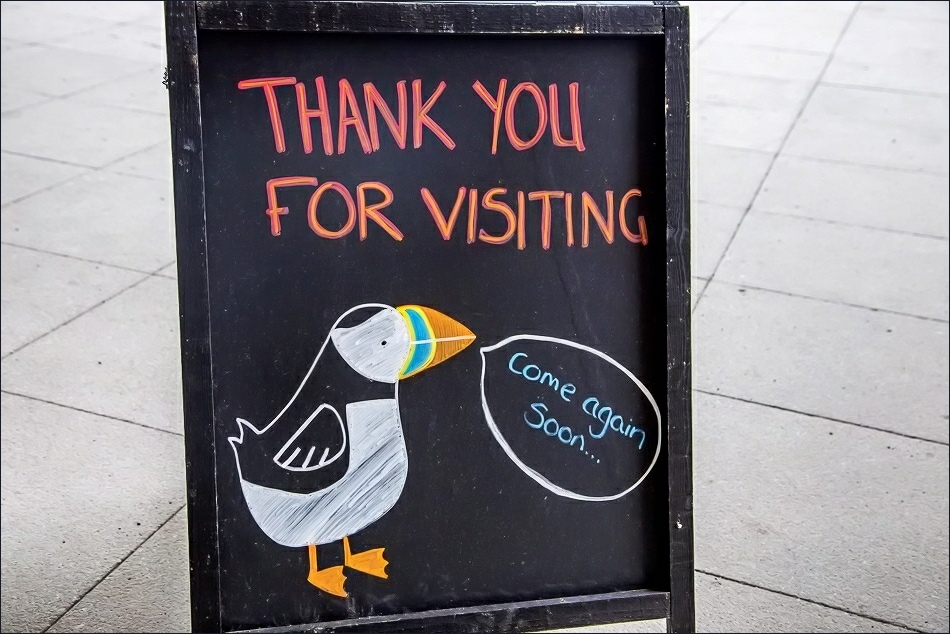 THANK YOU
FOR VISITING
Come again
Soon...